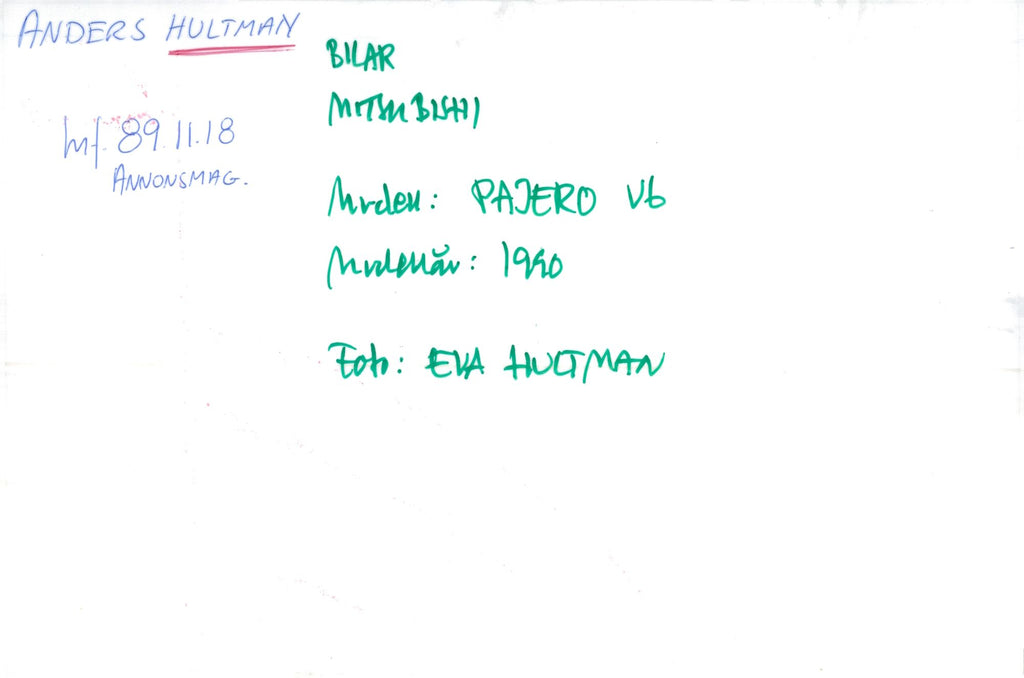 ANDERS HULTMAN
Inf. 89.11.18
ANNONSMAG.
BILAR
MITSUBISHI
Modell: PAJERO V6
Modellår: 1990
Foto: EVA HULTMAN